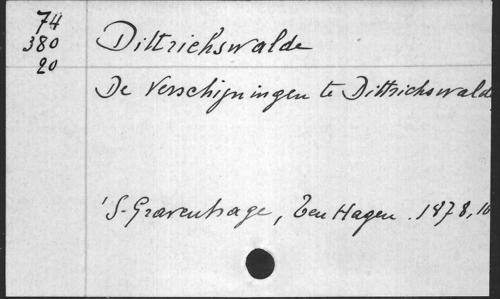 74
380
20
Dittrichswalde
De Verschijningen te Dittrichswald
'S-Gravenhage, Ten Hagen. 1878, 16